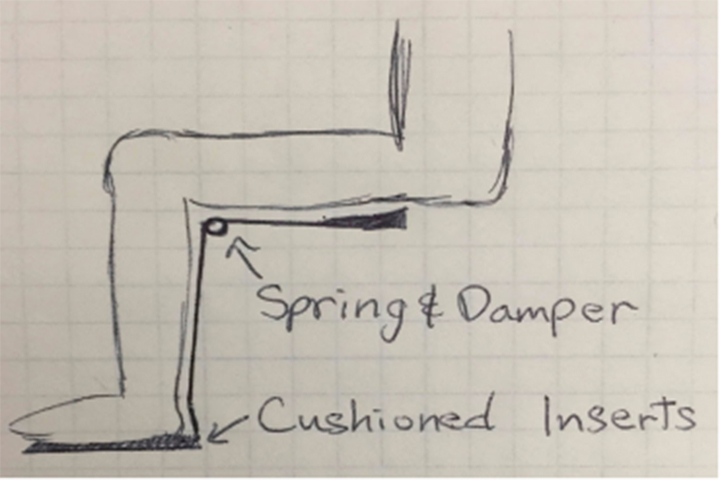 Spring & Damper
Cushioned Inserts